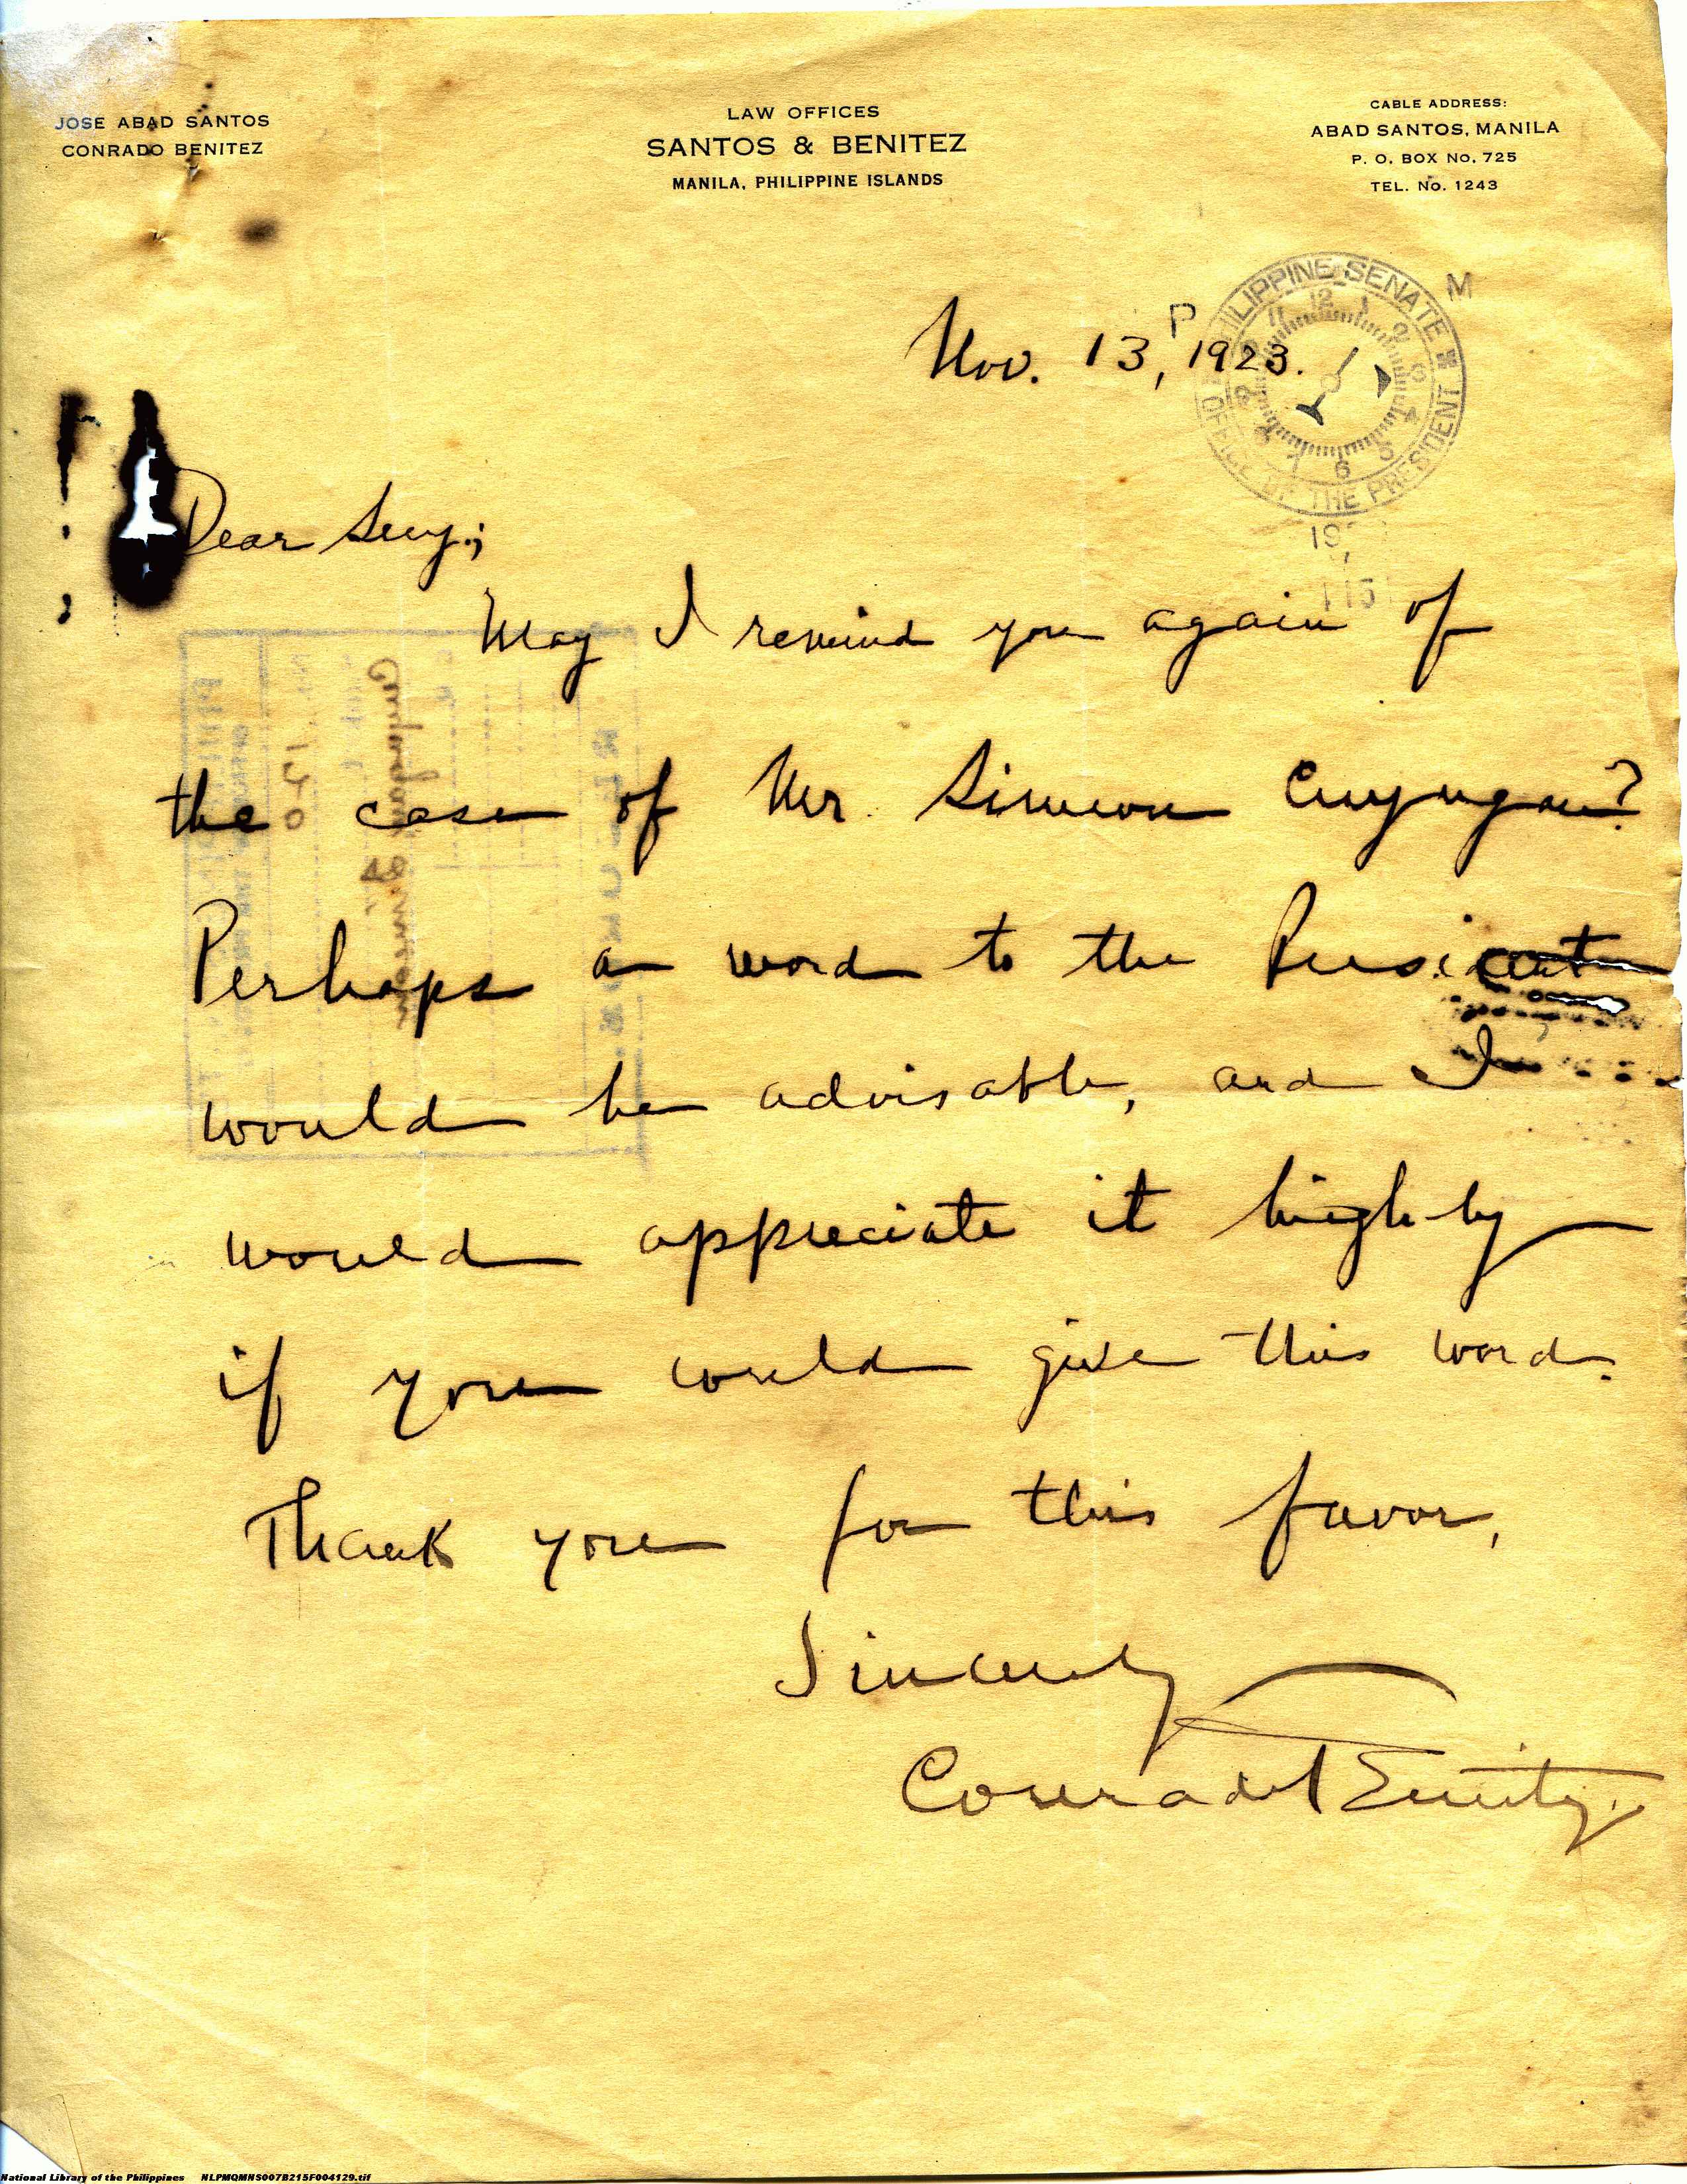 JOSE ABAD SANTOS
CONRADO BENITEZ
LAW OFFICES
SANTOS & BENITEZ
MANILA, PHILIPPINE ISLANDS
CABLE ADDRESS:
ABAD SANTOS, MANILA
P. O. BOX No. 725
TEL. No. 1243
PHILIPPINE SENATE
OFFICE OF THE PRESIDENT
P M
12 1 2 3 4 5 6 7 8 9 11
Nov. 13, 1923.
Dear Secy.;
May I remind you again of
the case of Mr. Simeon Cuyugan?
Perhaps a word to the President
would be advisable, and I
would appreciate it highly
if you would give this word.
Thank you for this favor,
Sincerely
Conrado Benitez
National Library of the Philippines NLPMQMNS007B215F004129.tif